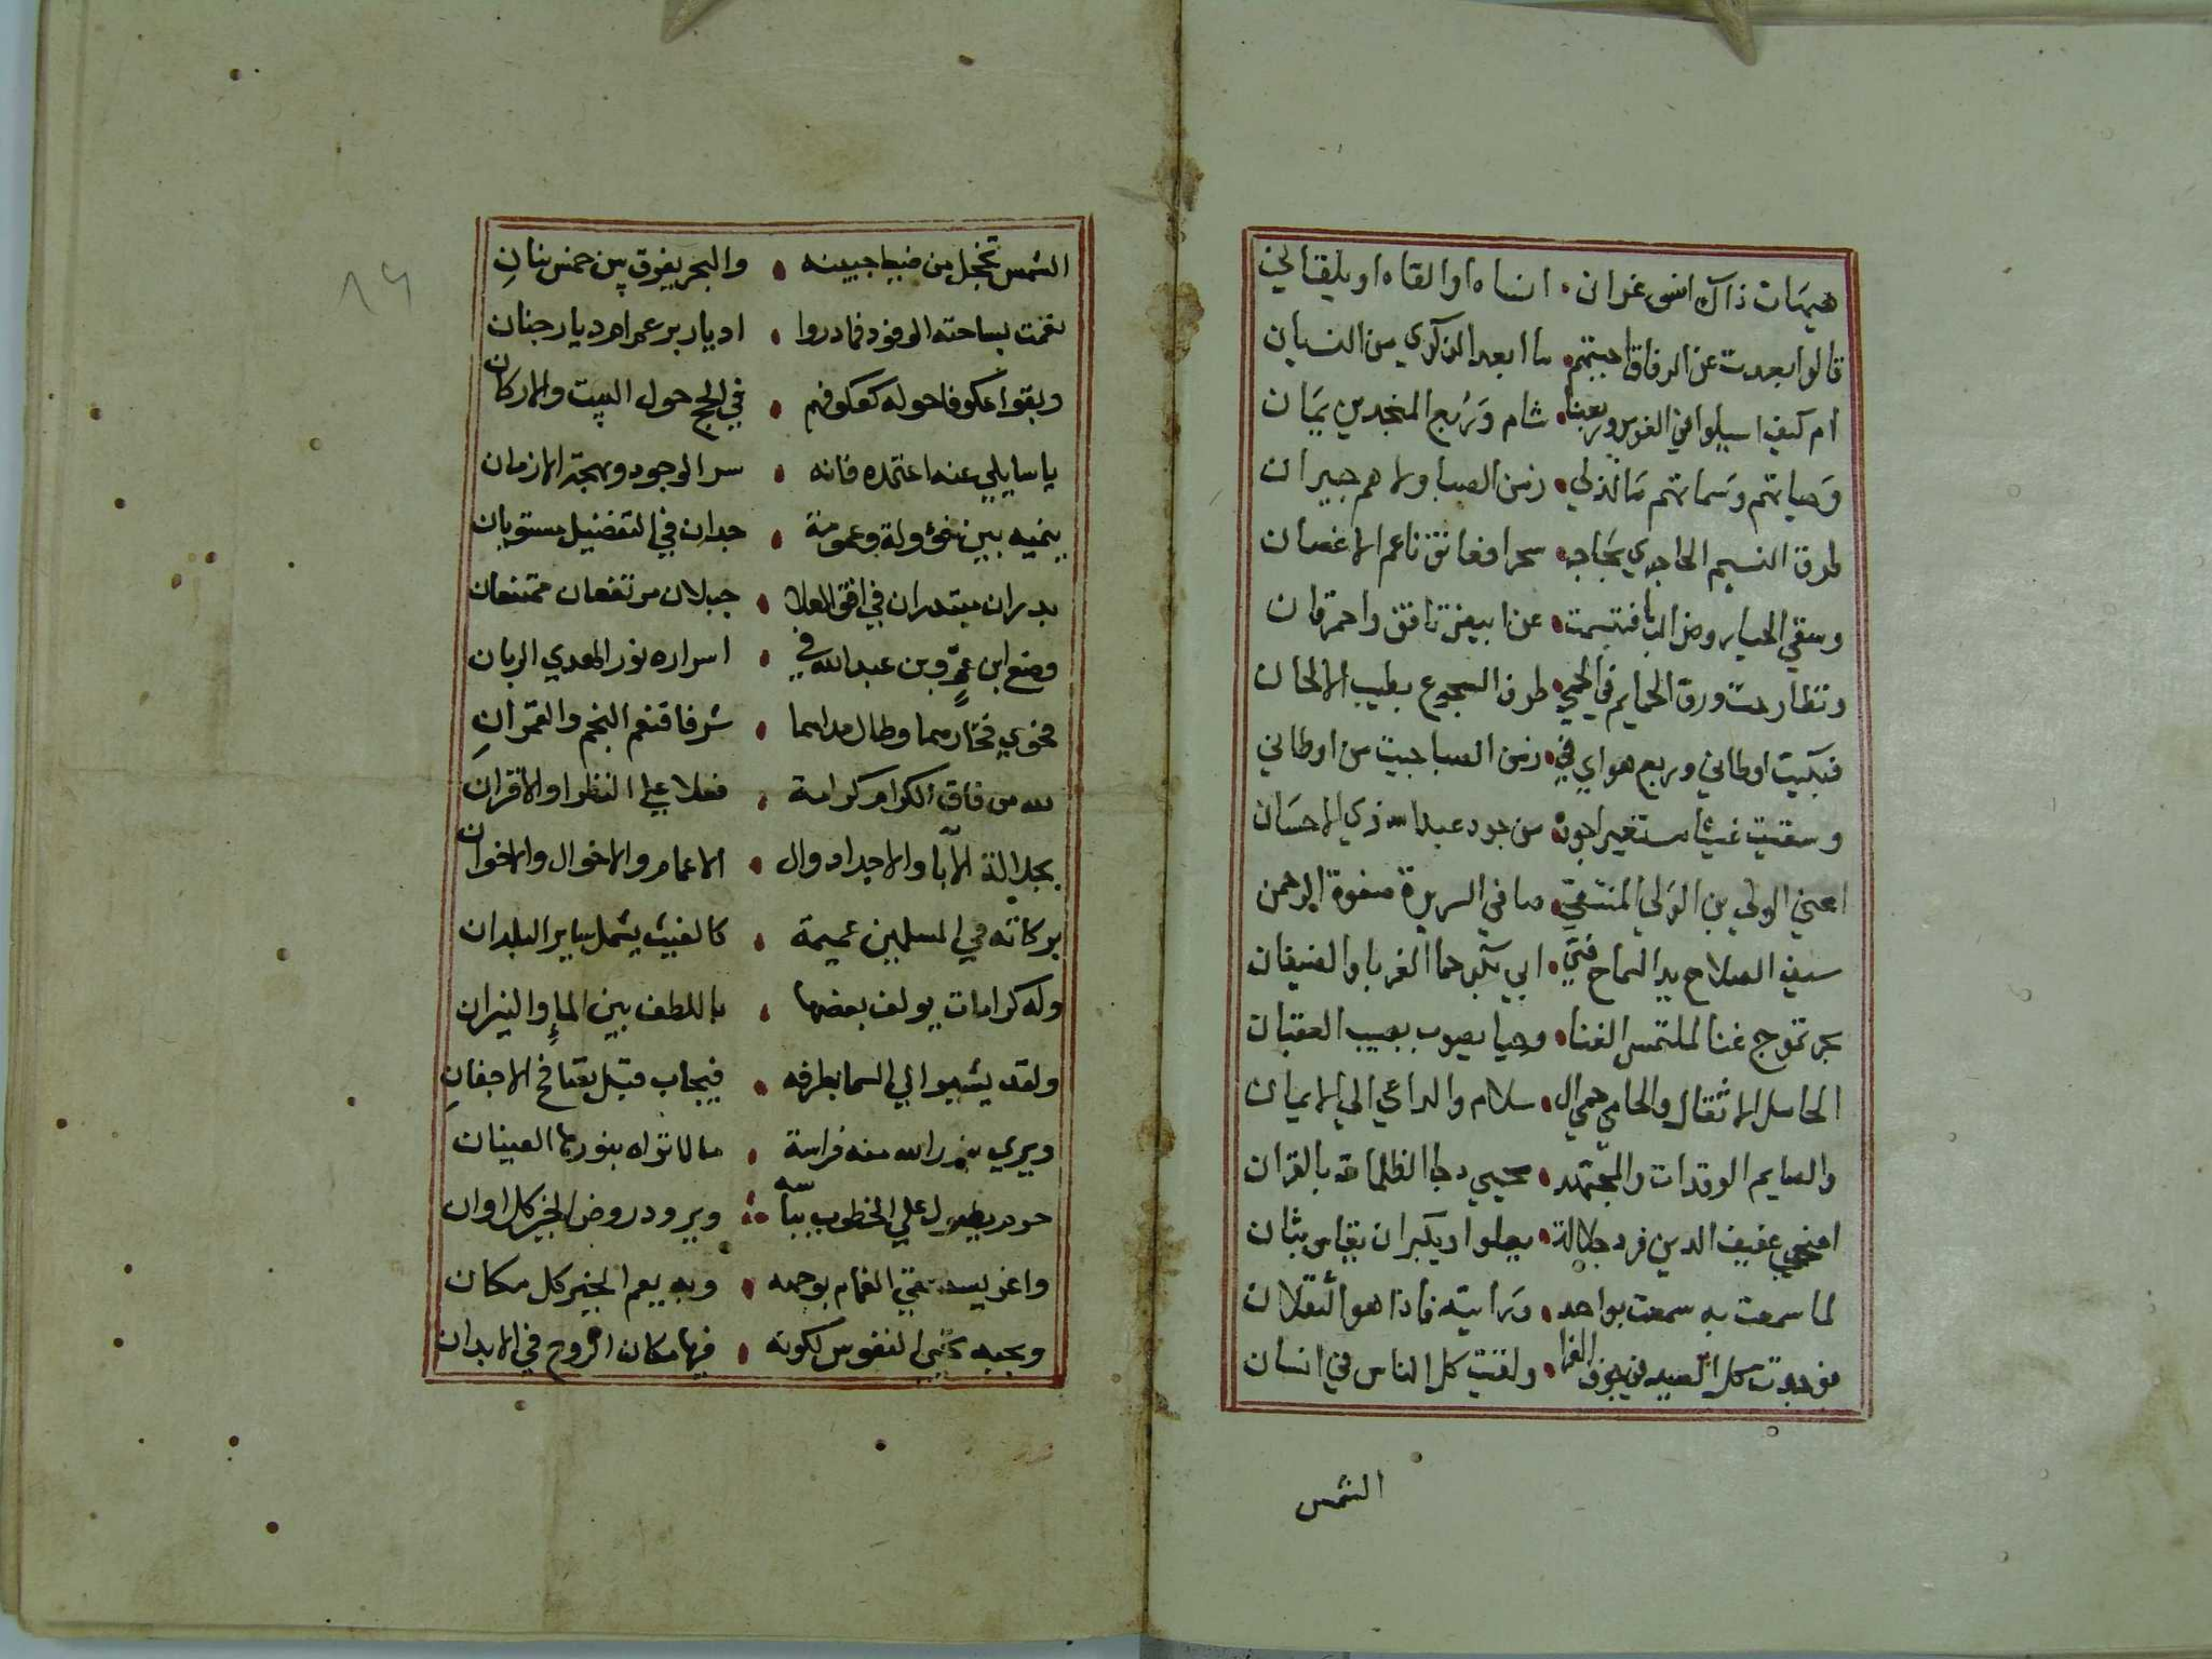 هيهات ذاك انسى غران • انساه او القاه او يلقاني
قالوا بعدت عن الرفاق احبتهم • ما ابعد الذكرى من النسيان
ام كيف اسلوا في الغور وربعنا • شام وربع المنجدين يمان
وحياتهم وسماتهم ما لذلي • زمن الصبا ولاهم جيران
طرق النسيم الحاجري بحاجر • سحرا فعانق ناعم الاغصان
وسقي الحيا روض الربا فتبسمت • عن ابيض تافق واحمر قان
وتطارحت ورق الحمايم في الحمي • طرف السجوع بطيب الالحان
فبكيت اوطاني وربع هواي في • زمن الصبا حييت من اوطاني
وسقيت غيثا مستعيرا جوده • من جود عبد الله ذي الاحسان
اعني الولي بن الولي المنتقي • صافي السريرة صفوة الرحمن
سيف الصلاح يد السماح فتي • ابي بكر حما الغربا والضيفان
بحر تموج غنا لملتمس الغنا • وحيا يصوب بصيب العقيان
الحامل الاثقال والحامي حمي ال • سلام والداعي الي الايمان
والصايم الوقدات والمجتهد • محيي دجا الظلمات بالقران
اضحي عفيف الدين فرد جلالة • يعلوا ويكبر ان يقاس بثان
لما سمعت به سمعت بواحد • ورايته فاذا هو الثقلان
فوجدت كل الصيد في جوف الفرا • ولقيت كل الناس في انسان
الشمس
١٤
الشمس تخجل من ضيا جبينه • والبحر يغرق بين خمس بنان
نغمت بساحته الوفود فما دروا • اديار بر عمر ام ديار جنان
وبقوا عكوفا حوله كعكوفهم • في الحج حول البيت والاركان
يا سايلي عنه اعتمده فانه • سر الوجود وبهجة الازمان
ينميه بين خؤولة وعمومة • جدان في التفضيل مستويان
بدران مبتدران في افق العلا • جبلان مرتفعان ممتنعان
وضع ابن عمرو بن عبد الله في • اسراره نور الهدي الربان
فحوي فخار سما وطال مداهما • شرفا فنعم النجم والقمران
لله من فاق الكرام كرامة • فعلا علي النظرا والاقران
بجلالة الآبا والاجداد وال • الاعمام والاخوال والاخوان
بركاته في المسلمين عميمة • كالغيث يشمل ساير البلدان
وله كرامات يولف بعضها • باللطف بين الماء والنيران
ولقد يشير الي السما بطرفه • فيجاب قبل تفاتح الاجفان
ويري بنور الله منه فراسة • ما لا تراه بنورها العينان
حود يطول علي الخطوب بباسه • ويرود روض الخير كل اوان
واغر يستسقي الغمام بوجهه • وبه يعم الخير كل مكان
وبحبه تحيي النفوس لكونه • فيها مكان الروح في الابدان